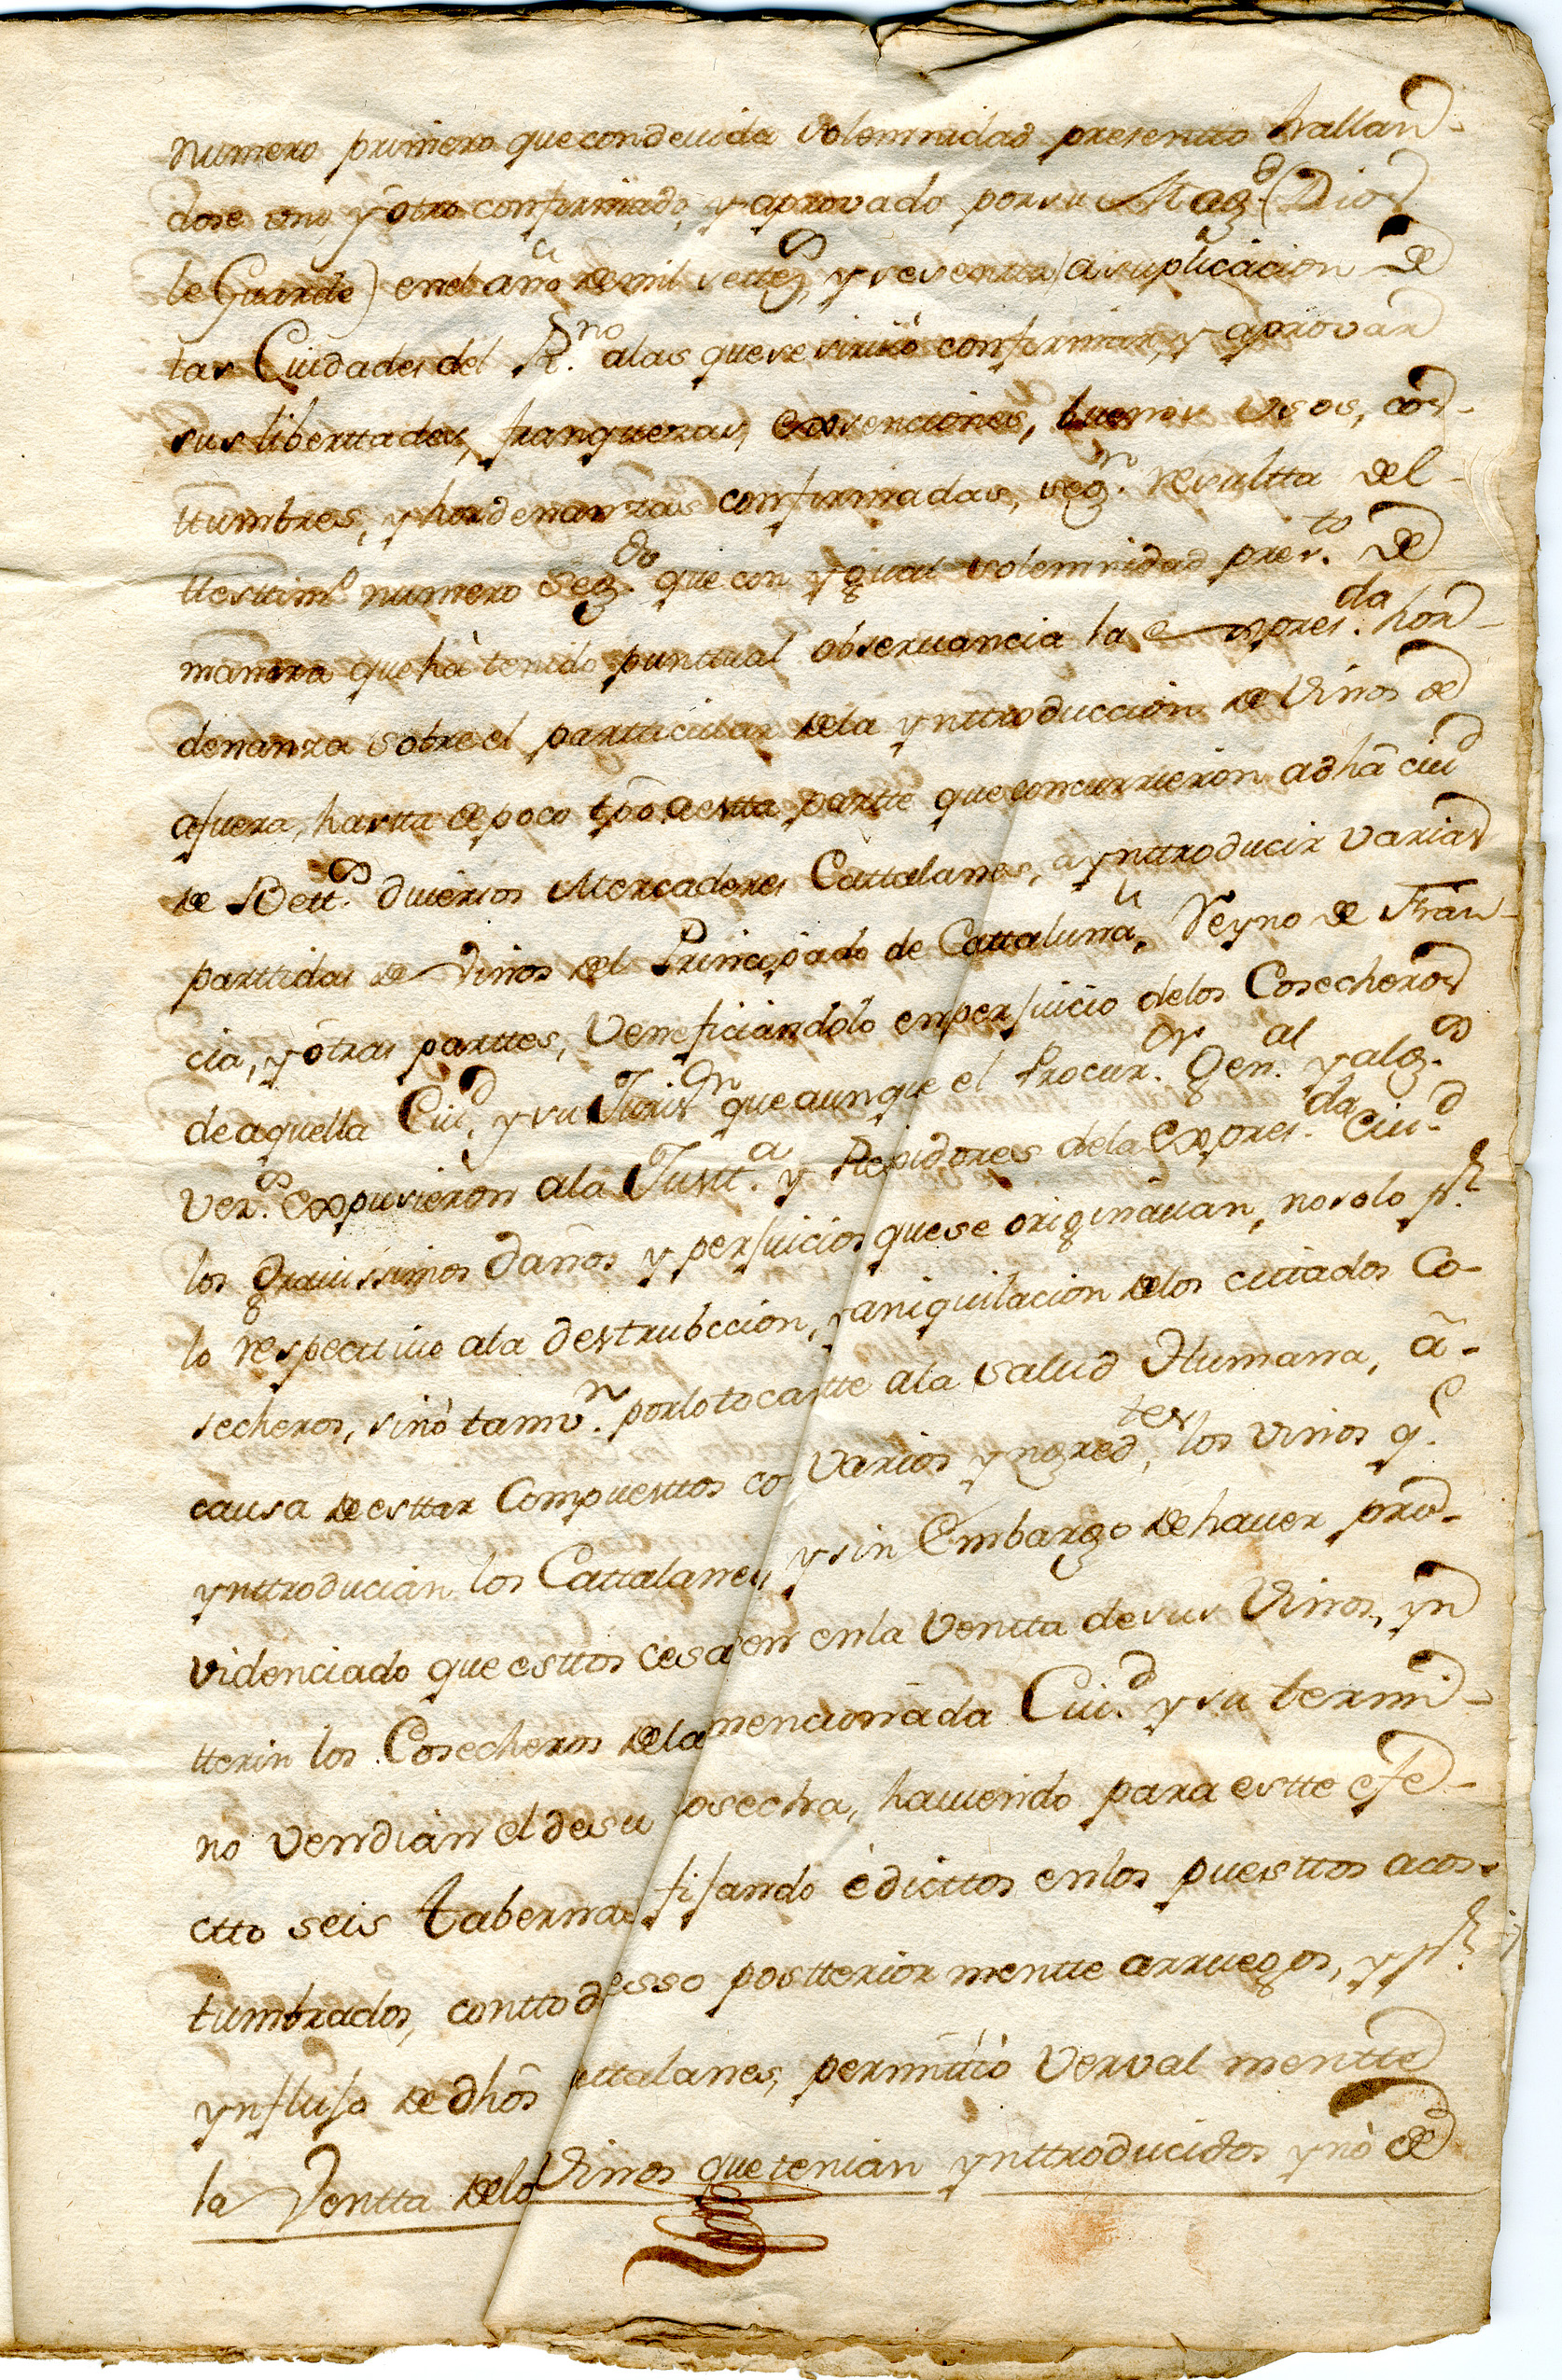 numero primero que con devida solemnidad presentto hallan-
dose uno, y otro confirmado, y aprovado por su Mag.d (Dios
le Guarde) en el año de mil settez.s y sesentta, a suplicacion de
las Ciudades del R.no a las que se sirvió confirmar, y aprovar
sus liberttades, franquezas, exsenciones, buenos usos, cos-
ttumbres, y hordenanzas confirmadas, seg.n resultta del-
ttesttim.o numero seg.do que con ygual solemnidad pres.to de
manera que há tenido punttual observancia la expres.da hor-
denanza sobre el partticular de la ynttroduccion de Vinos de
afuera, hastta de poco tpō a estta partte que concurrieron a dhā ciu.d
de Bett.s diversos Mercaderes Cattalanes, a ynttroducir varias
parttidas de Vinos del Principado de Cattaluña, Reyno de Fran-
cia, y otras parttes, veneficiandolo en perjuicio de los Cosecheros
de aquella Ciu.d, y su Juris.on que aunque el Procur.or Gen.al y alg.s
vez.s expusieron a la Justt.a y Rexidores de la Expres.da Ciu.d
los gravissimos daños y perjuicios que se originavan, no solo p.r
lo respecttivo a la desttrubccion, y aniquilacion de los cittados Co-
secheros, sinó tamv.n por lo tocantte a la salud Humana, á-
causa de esttar Compuesttos co varios yngred.tes, los vinos q.e
ynttroducian los Cattalanes, y sin Embargo de haver pro-
videnciado que esttos cesasen en la Ventta de sus Vinos, yn
tterin los Cosecheros de la mencionada Ciu.d y su termi-
no vendian el de su osecha, haviendo para estte efe-
ctto seis tabernas fijando édicttos en los puesttos acos-
tumbrados, con ttodo esso postteriormentte a rruegos, y p.r
ynflujo de dhōs attalanes, permittió vervalmentte
la Ventta de lo Vinos que tenian ynttroducidos y nó de